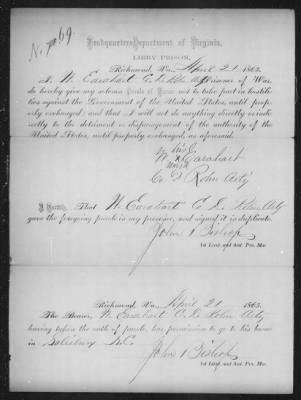 No. 7269
Headquarters Department of Virginia,
LIBBY PRISON,
Richmond, Va. April 21 1865.
I, W. Earahart Co. I. Prisoner of War,
do hereby give my solemn Parole of Honor not to take part in hostili-
ties against the Government of the United States, until prop-
erly exchanged; and that I will not do anything directly or indi-
rectly to the detriment or disparagement of the authority of the
United States, until properly exchanged, as aforesaid.
his
W. x Earahart
mark
Co. I
I Certify, That W. Earahart Co. I.
gave the foregoing parole in my presence, and signed it in duplicate.
John Bishop
1st Lieut. and Ast. Pro. Mar.
Richmond, Va. April 21 1865.
The Bearer, W. Earahart Co. I.
having taken the oath of parole, has permission to go to his home
in Salisbury N.C.
John Bishop
1st Lieut. and Ast. Pro. Mar.